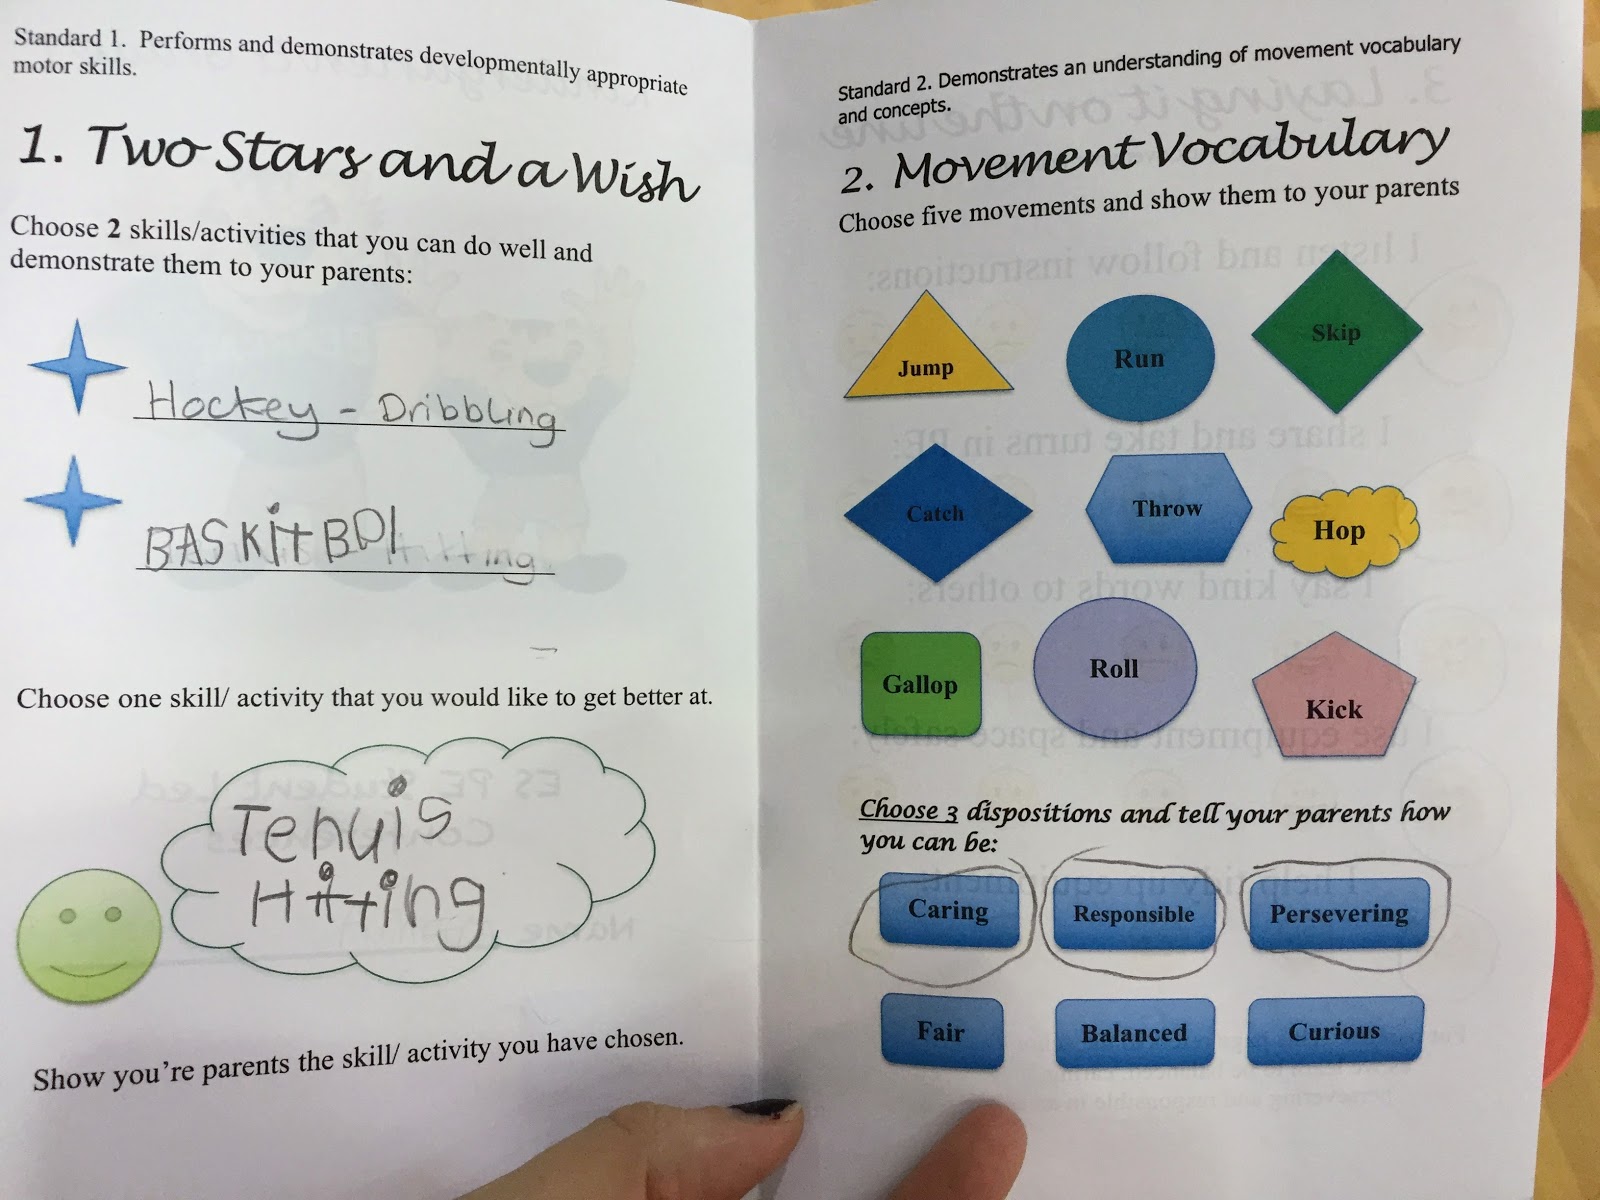 Standard 1. Performs and demonstrates developmentally appropriate
motor skills.
1. Two Stars and a Wish
Choose 2 skills/activities that you can do well and
demonstrate them to your parents:
Hockey - Dribbling
BASKitBDl
Choose one skill/ activity that you would like to get better at.
Tennis
Hitting
Show you're parents the skill/ activity you have chosen.
Standard 2. Demonstrates an understanding of movement vocabulary
and concepts.
2. Movement Vocabulary
Choose five movements and show them to your parents
Jump
Run
Skip
Catch
Throw
Hop
Gallop
Roll
Kick
Choose 3 dispositions and tell your parents how
you can be:
Caring
Responsible
Persevering
Fair
Balanced
Curious